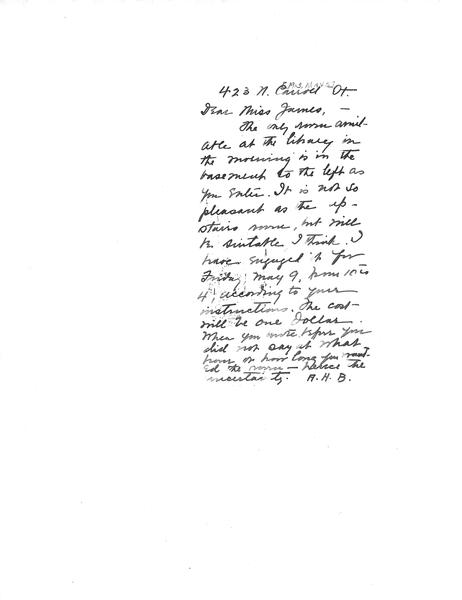 423 N. Carroll St.
Dear Miss James, —
The only room avail-
able at the library in
the morning is in the
basement to the left as
you enter. It is not so
pleasant as the up-
stairs room, but will
be suitable I think. I
have engaged it for
Friday, May 9, from 10 to
4, according to your
instructions. The cost
will be one Dollar.
When you wrote before you
did not say at what
hour or how long you want-
ed the room — hence the
uncertainty. A. H. B.